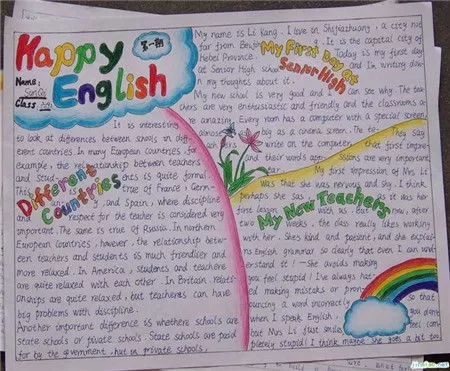 Happy
English
第一期
Name:
Class
My name is Li Kang. I live in Shijiazhuang, a city not
far from Beijing. It is the capital city of
Hebei Province.
My First Day at
Senior High
Today is my first day
at Senior High school and I'm writing down
my thoughts about it.
My new school is very good and I can see why. The tea-
chers are very enthusiastic and friendly and the classrooms a
re amazing. Every room has a computer with a special screen,
almost as big as a cinema screen. The te-
write on the computer
They say
that first impre-
and their words
ssions are very important
My first impression of Mrs Li
was that she was nervous and shy. I think
perhaps she was, as it was her
first lesson with us. But now, after
two weeks, the class really likes working
with her. She's kind and patient, and she explai-
ns English grammar so clearly that even I can und-
erstand it! - She avoids making
you feel stupid! I've always hat-
ed making mistakes or pron-
ouncing a word incorrectly
when I speak English,
but Mrs Li just smiles
so that
you don't
feel com-
pletely stupid! I think maybe she goes a bit too
My New Teachers
Different
Countries
It is interesting
to look at differences between schools in diff-
erent countries. In many European countries, for
example, the relationship between teachers
and students is quite formal.
This is true of France, Germ-
any, and Spain, where discipline
and respect for the teacher is considered very
important. The same is true of Russia. In northern
European countries, however, the relationship bet-
ween teachers and students is much friendlier and
more relaxed. In America, students and teachers
are quite relaxed with each other. In Britain, relati-
onships are quite relaxed, but teachers can have
big problems with discipline.
Another important difference is whether schools are
state schools or private schools. State schools are paid
for by the government, but in private schools,